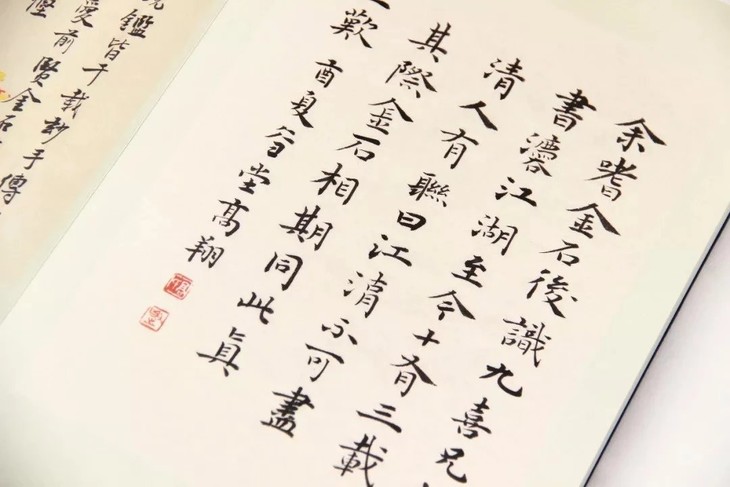 余嗜金石後識九喜兄
書灋江湖至今十有三載
清人有聯曰江清不可盡
其際金石相期同此真
一歎 酉夏堂高翔
鑑皆千載妙手傳
愛前賢金石